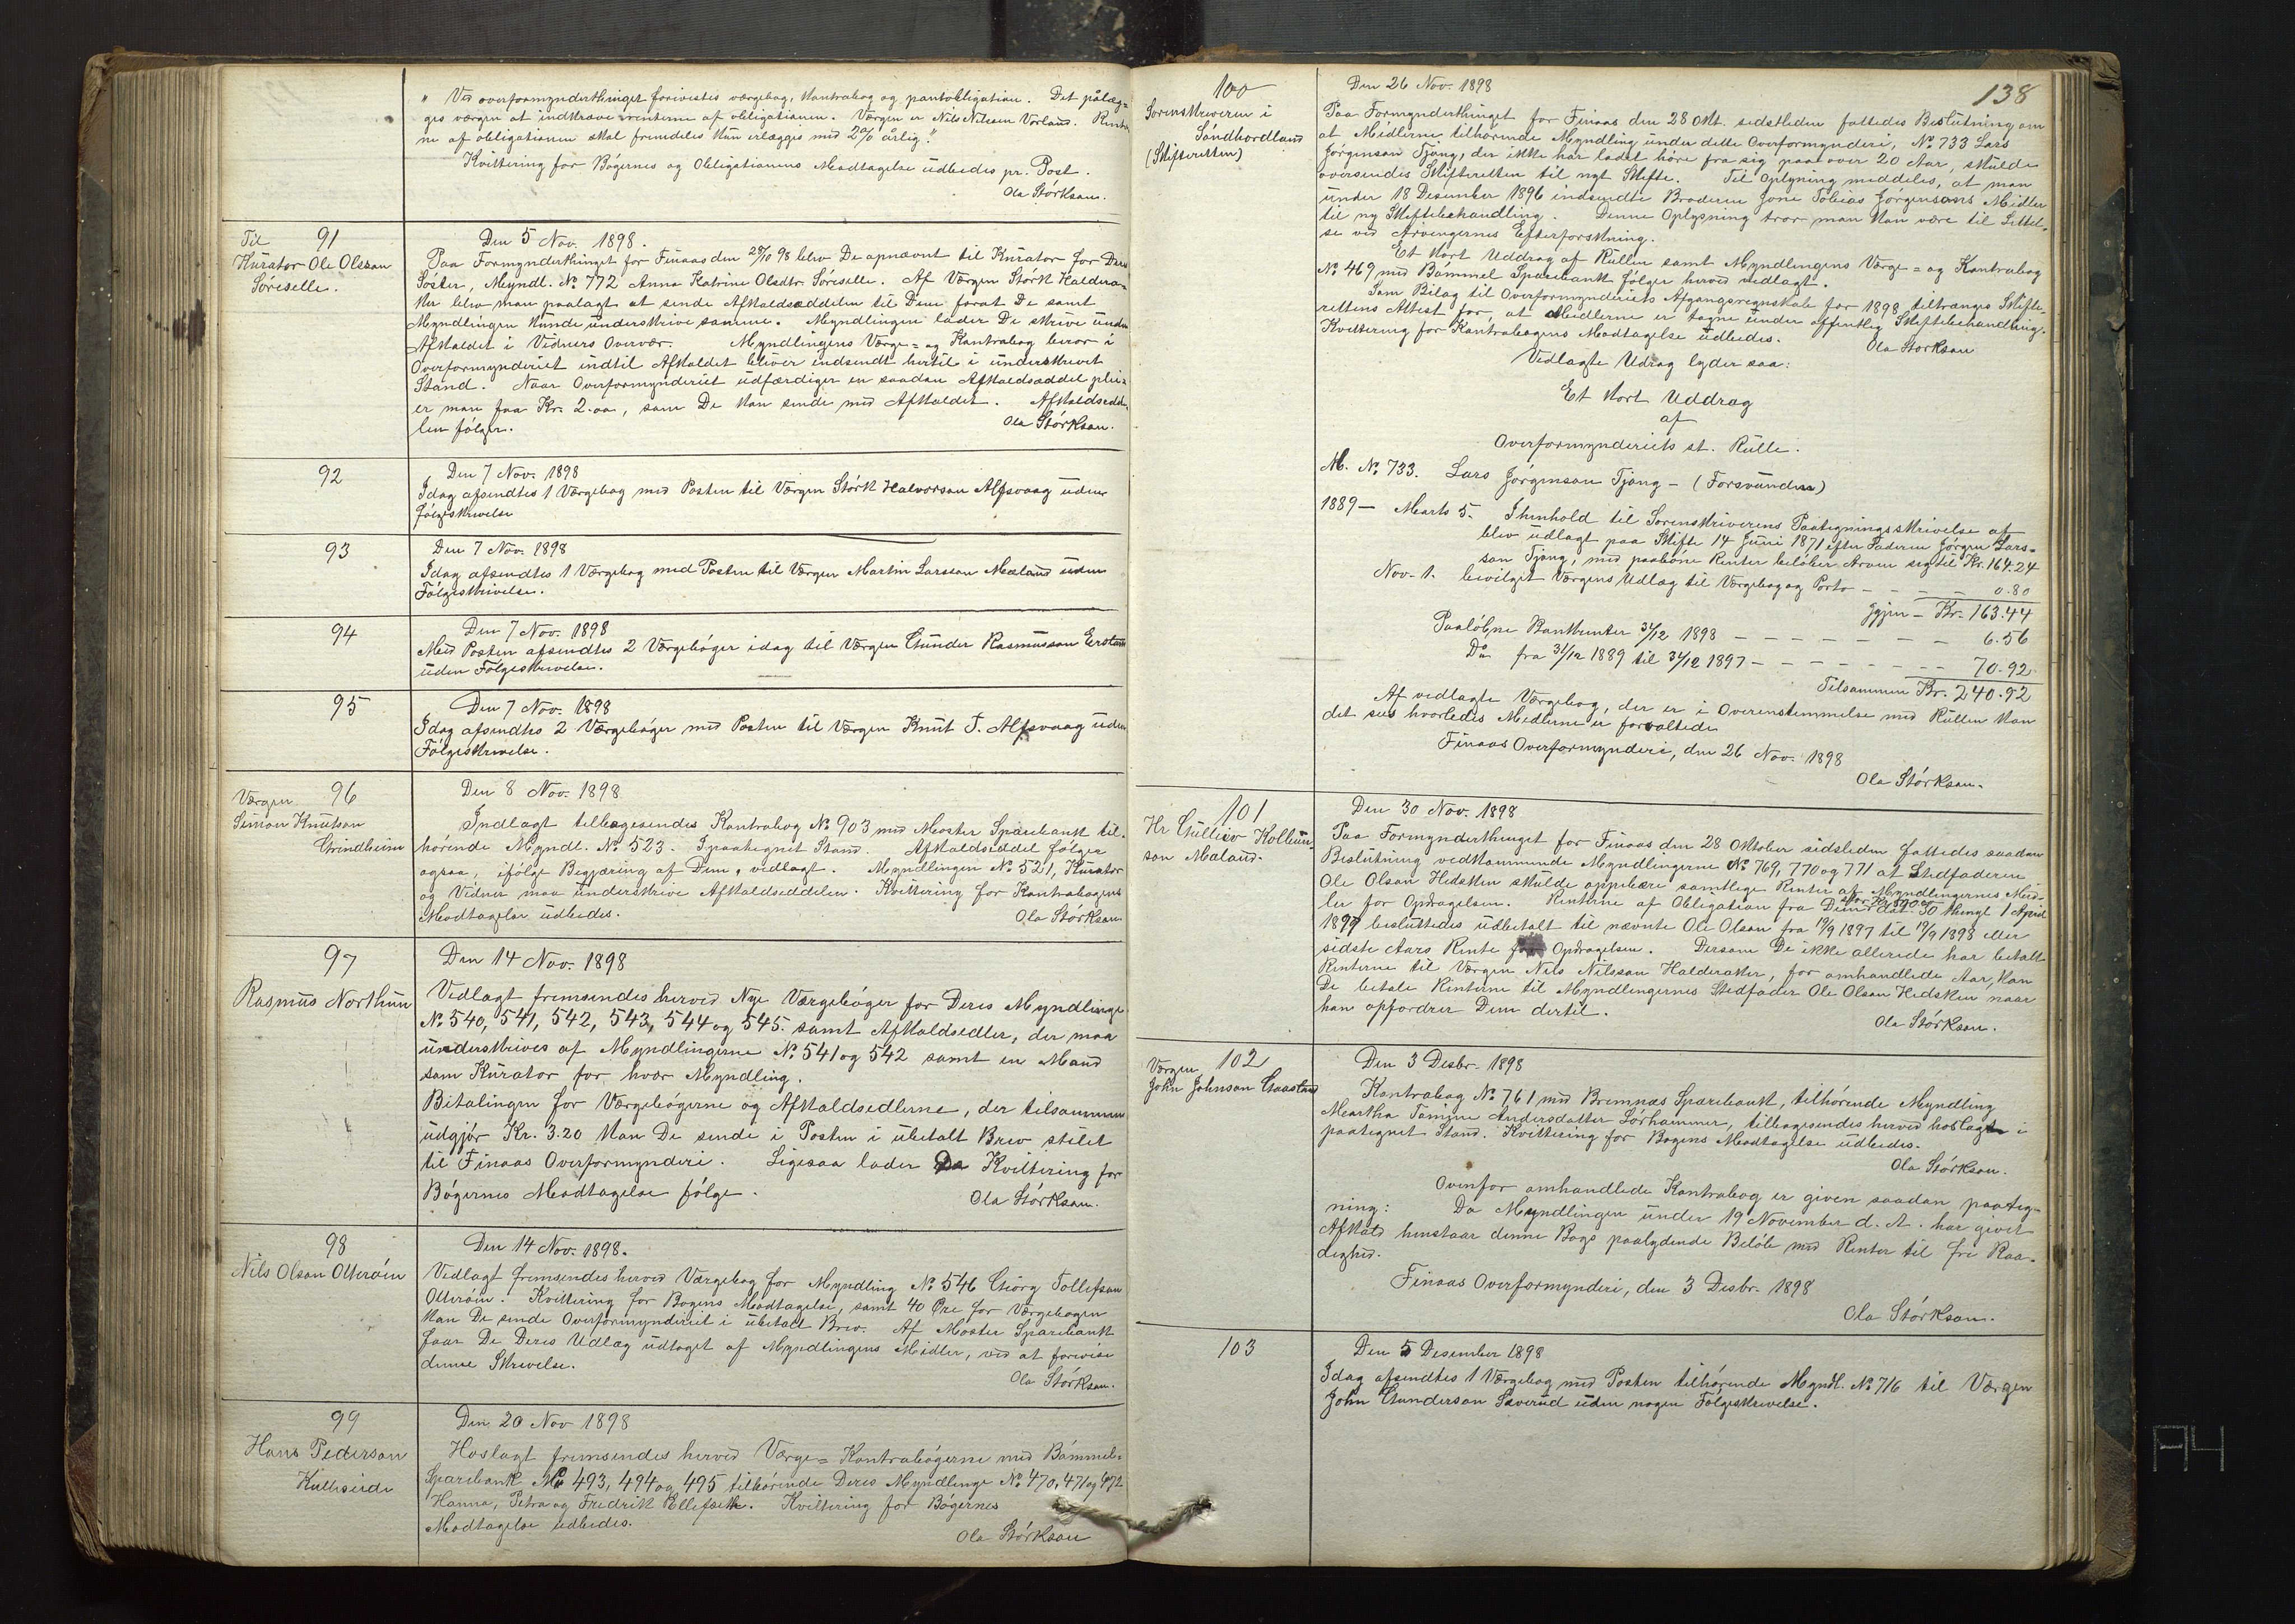 " Ved overformynderthinget forevistes værgebog, kontrabog og pantobligation. Det pålæg=
ges værgen at indkræve renterne af obligationen. Værgen er Nils Nilssen Vorland. Rente
ne af obligationen skal fremdeles kun erlægges med 2% årlig."
Kvittering for Bøgernes og Obligationens Modtagelse udbedes pr. Post.
Ola Størkson.
Til 91
Kurator Ole Olsson
Søreselle.
Den 5 Nov. 1898.
Paa Formynderthinget for Finaas den 28/10 98 blev De opnævnt til Kurator for Deres
Søster, Myndl. No 772 Anna Katrine Olsdtr. Søreselle. Af Værgen Størk Haldera=
ker blev man paalagt at sende Afkaldseddelen til Dem forat De samt
Myndlingen kunde underskrive samme. Myndlingen lader De skrive under
Afkaldet i Vidners Overvær. Myndlingens Værge= og Kontrabog beror i
Overformynderiet indtil Afkaldet bliver indsendt hertil i underskrevet
Stand. Naar Overformynderiet udfærdiger en saadan Afkaldseddel plei=
er man faa Kr. 2.00, som De kan sende med Afkaldet. Afkaldsedde=
len følger.
Ola Størkson.
92
Den 7 Nov. 1898
Idag afsendtes 1 Værgebog med Posten til Værgen Størk Halvorson Alfsvaag uden
Følgeskrivelse
93
Den 7 Nov. 1898
Idag afsendtes 1 Værgebog med Posten til Værgen Martin Larsson Mæland uden
Følgeskrivelse.
94
Den 7 Nov. 1898
Med Posten afsendtes 2 Værgebøger idag til Værgen Gunder Rasmusson
uden Følgeskrivelse.
95
Den 7 Nov. 1898
Idag afsendtes 2 Værgebøger med Posten til Værgen Knut T. Alfsvaag uden
Følgeskrivelse.
Værgen 96
Simon Knutson
Grindheim
Den 8 Nov. 1898
Indlagt tilbagesendes Kontrabog No 903 med Moster Sparebank til=
hørende Myndl. No 523. I paategnet Stand. Afkaldseddel følger
ogsaa, ifølge Begjæring af Dem, vedlagt. Myndlingen No 521, Kurator
og Vidner maa underskrive Afkaldseddelen. Kvittering for Kontrabogens
Modtagelse udbedes.
Ola Størkson
97
Rasmus Northun
Den 14 Nov. 1898
Vedlagt fremsendes herved Nye Værgebøger for Deres Myndlinge
No 540, 541, 542, 543, 544 og 545. samt Afkaldsedler, der maa
underskrives af Myndlingerne No 541 og 542 samt en Mand
som Kurator for hver Myndling.
Betalingen for Værgebøgerne og Afkaldsedlerne, der tilsammen
udgjør Kr. 3.20 kan De sende i Posten i ubetalt Brev stilet
til Finaas Overformynderi. Ligesaa lader De Kvittering for
Bøgernes Modtagelse følge.
Ola Størkson.
98
Nils Olson Otterøen
Den 14 Nov. 1898.
Vedlagt fremsendes herved Værgebog for Myndling No 546 Georg Tollefson
Otterøen. Kvittering for Bogens Modtagelse, samt 40 Øre for Værgebogen
kan De sende Overformynderiet i ubetalt Brev. Af Moster Sparebank
faar De Deres Udlæg udtaget af Myndlingens Midler, ved at forevise
denne Skrivelse.
Ola Størkson.
99
Hans Pederson
Kulleseide
Den 20 Nov 1898
Hoslagt fremsendes herved Værge= Kontrabøgerne med Bømmel=
Sparebank No 493, 494 og 495 tilhørende Deres Myndlinge No 470, 471 og 472
Hanna, Petra og Fredrik Ellefsen. Kvittering for Bøgernes
Modtagelse udbedes.
Ola Størkson
138
100
Sorenskriveren i
Søndhordland
(Skifteretten)
Den 26 Nov. 1898
Paa Formynderthinget for Finaas den 28 Okt. sidstleden fattedes Beslutning om
at Midlerne tilhørende Myndling under dette Overformynderi, No 733 Lars
Jørgenson Tjong, der ikke har ladet høre fra sig paa over 20 Aar, skulde
oversendes Skifteretten til nyt Skifte. Til Oplysning meddeles, at man
under 18 Desember 1896 indsendte Broderen Jone Tobias Jørgensons Midler
til ny Skiftebehandling. Denne Oplysning tror man kan være til Lettel=
se ved Arvingernes Efterforskning.
Et kort Uddrag af Rullen samt Myndlingens Værge= og Kontrabog
No 469 med Bømmel Sparebank følger herved vedlagt.
Som Bilag til Overformynderiets Afgangsregnskab for 1898 tiltrænges Skifte=
rettens Attest for, at Midlerne er tagne under offentlig Skiftebehandling.
Kvittering for Kontrabogens Modtagelse udbedes. Ola Størkson
Vedlagte Udrag lyder saa:
Et kort Uddrag
af
Overformynderiets st. Rulle.
M. No. 733. Lars Jørgenson Tjong - (Forsvunden)
1889 - Marts 5. I henhold til Sorenskriverens Paategningsskrivelse af
blev udlagt paa Skifte 14 Juni 1871 efter Faderen Jørgen Lars=
son Tjong, med paaløbne Renter beløber Arven sig til Kr. 164.24
Nov. 1. bevilget Værgens Udlæg til Værgebog og Porto - - - - 0.80
Igjen - Kr. 163.44
Paaløbne Bankrenter 31/12 1898 - - - - - - - 6.56
Do fra 31/12 1889 til 31/12 1897 - - - - - - - 70.92
Tilsammen Kr. 240.92
Af vedlagte Værgebog, der er i Overenstemmelse med Rullen kan
det sees hvorledes Midlerne er forvaltede
Finaas Overformynderi, den 26 Nov. 1898
Ola Størkson.
101
Hr Gulleiv Kolbein=
son Maland.
Den 30 Nov. 1898
Paa Formynderthinget for Finaas den 28 Oktober sidsleden fattedes saadan
Beslutning vedkommende Myndlingerne No 769, 770 og 771 at Stedfaderen
Ole Olson Hidsken skulde oppebære samtlige Renter af Myndlingernes Mid=
ler for Opdragelsen. Renterne af Obligation fra Dem dat. 30 thingl. 1 April
1897 besluttedes udbetalt til nævnte Ole Olson fra 19/9 1897 til 19/9 1898 eller
sidste Aars Rente for Opdragelsen. Dersom De ikke allerede har betalt
Renterne til Værgen Nils Nilsson Halderaker, for omhandlede Aar, kan
De betale Renterne til Myndlingernes Stedfader Ole Olson Hidsken naar
han opfordrer Dem dertil.
Ola Størkson.
Værgen 102
John Johnson Gaasland
Den 3 Desbr. 1898
Kontrabog No 761 med Bremnæs Sparebank, tilhørende Myndling
Martha Tomine Andersdatter Sørhammer, tilbagesendes herved hoslagt i
paategnet Stand. Kvittering for Bogens Modtagelse udbedes.
Ola Størkson.
Ovenfor omhandlede Kontrabog er given saadan paateg=
ning: Da Myndlingen under 19 November d. A. har givet
Afkald henstaar denne Bogs paalydende Beløb med Renter til fri Raa=
dighed.
Finaas Overformynderi, den 3 Desbr. 1898
Ola Størkson.
103
Den 5 Desember 1898
Idag afsendtes 1 Værgebog med Posten tilhørende Myndl. No 716 til Værgen
John Gunderson Sæverud uden nogen Følgeskrivelse.